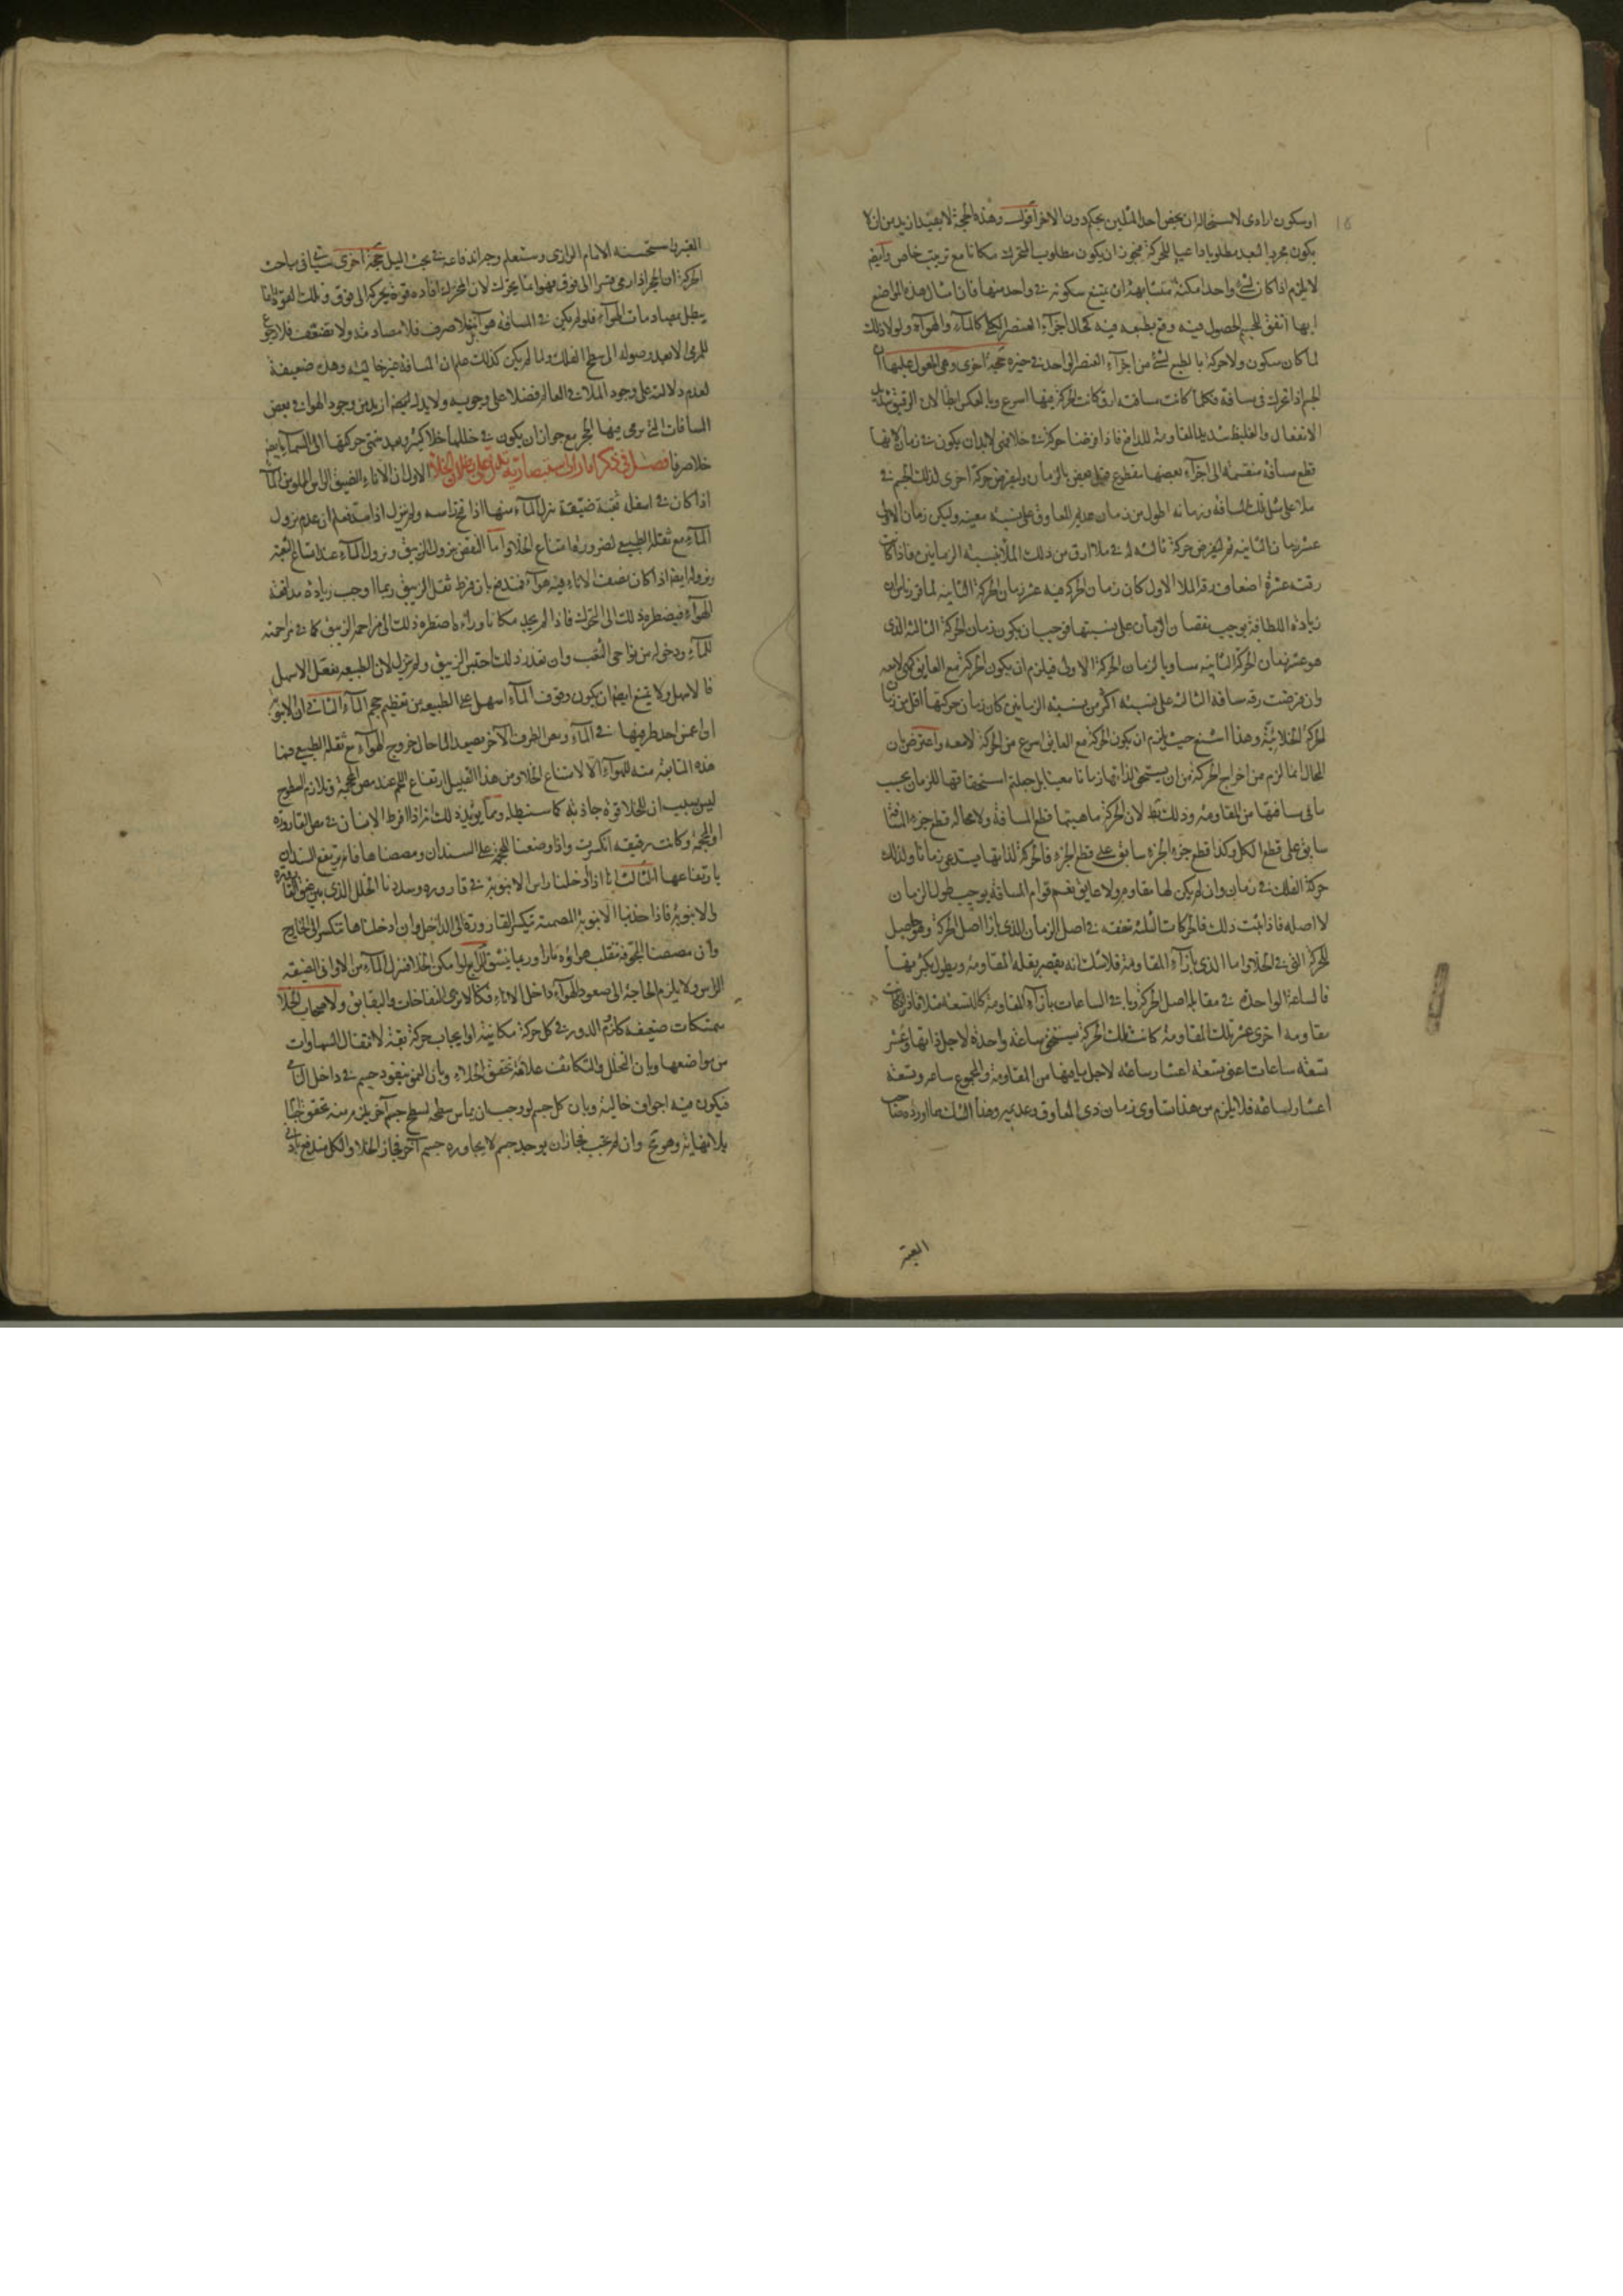 او سكون ارادى لاستحالة ان يخص احد المثلين بحكم دون الاخر اقول وهذه الحجة لا يفيد ازيد من ان لا
يكون مجرد البعد مطلوبا داعيا للحركة فيجوز ان يكون مطلوب المتحرك مكانا مع ترتيب خاص وايضا
لا يلزم اذا كان لشئ واحد امكنة متشابهة ان يمتنع سكونه فى واحد منها فان امثال هذه المواضع
ايها اتفق للجسم الحصول فيه وقع بطبعه فيه كحال اجزاء العنصر الكلى كالماء والهواء ولولا ذلك
لما كان سكون ولا حركة بالطبع لشئ من اجزاء العنصر الواحد فى حيزه حجة اخرى وهى المعول عليها ان
الجسم اذا تحرك فى مسافة فكلما كانت مسافته ارق كانت الحركة فيها اسرع وبالعكس ابطا لان الرقيق شديد
الانفعال والغليظ شديد المقاومة للدافع فاذا فرضنا حركة فى خلا فمن لابد ان يكون فى زمان لانها
قطع مسافة منقسمة الى اجزاء بعضها مقطوع قبل بعض بالزمان وليفرض حركة اخرى لذلك الجسم فى
ملا على مثل تلك المسافة وزمانه اطول من زمان عديم المعاوق على نسبة معينة وليكن زمان الاولى
عشر زمان الثانية ثم ليفرض حركة ثالثة له فى ملا ارق من ذلك الملا بنسبة الزمانين فاذا كانت
رقته عشرة اضعاف رقة الملا الاول كان زمان الحركة فيه عشر زمان الحركة الثانية لما قررناه ان
زيادة اللطافة يوجب نقصان الزمان على نسبتها فوجب ان يكون زمان الحركة الثالثة الذى
هو عشر زمان الحركة الثانية مساويا لزمان الحركة الاولى فيلزم ان يكون الحركة مع العايق كهى لا معه
وان فرضت رقة مسافة الثالثة على نسبة اكثر من نسبة الزمانين كان زمان حركتها اقل من زمان
الحركة الخلائية وهذا اشنع حيث يلزم ان يكون الحركة مع العايق اسرع من الحركة لا معه واعترض بان
المحال انما لزم من اخراج الحركة من ان يستحق لذاتها زمانا معينا بل جعلتم استحقاقها للزمان بحسب
ما فى مسافتها من المقاومة وذلك بط لان الحركة ماهيتها قطع المسافة ولا محالة قطع جزء المسافة
سابق على قطع الكل وكذا قطع جزء الجزء سابق على قطع الجزء فالحركة لذاتها يستدعى زمانا ولذلك
حركة الفلك فى زمان وان لم يكن لها مقاوم ولا عايق نعم قوام المسافة يوجب طول الزمان
لا اصله فاذا ثبت ذلك فالحركات الثلثة متفقة فى اصل الزمان الذى بازا اصل الحركة وهو حاصل
للحركة التى فى الخلا واما الذى بازاء المقاومة فلا شك انه يقصر بقلة المقاومة ويطول بكثرتها
فالساعة الواحدة فى مقابلة اصل الحركة وباقى الساعات بازاء المقاومة كالتسعة مثلا فاذا كانت
مقاومة اخرى عشر تلك المقاومة كانت تلك الحركة يستحق ساعة واحدة لاجل ذاتها وعشر
تسعة ساعات اعنى تسعة اعشار ساعة لاجل ما فيها من المقاومة والمجموع ساعة وتسعة
اعشار ساعة فلا يلزم من هذا تساوى زمان ذى المعاوق وعديمه وهذا الشك مما اورده صاحب
المعتبر
المعتبر واستحسنه الامام الرازى وستعلم وجه اندفاعه فى بحث الميل حجة اخرى سيأتى فى مباحث
الحركة ان الحجر اذا رمى قسرا الى فوق فهو انما يتحرك لان المحرك افاده قوة يحركه الى فوق وتلك القوة انما
يبطل بمصادمات الهواء فلو لم يكن فى المسافة هواء بل خلا صرف فلا مصادمة ولا تضعف فلا رجوع
للمرمى الا بعد وصوله الى سطح الفلك ولما لم يكن كذلك علم ان المسافة غير خالية وهذه ضعيفة
لعدم دلالته على وجود الملا فى العالم فضلا على وجوبه ولا يدل ايضا ازيد من وجود الهواء فى بعض
المسافات التى يرمى فيها الحجر مع جواز ان يكون فى خللها خلا كثير وبعد منتهى حركتها الى السماء ايضا
خلا صرفا فصل فى ذكر امارات استبصارية يدل على بطلان الخلاء الاول ان الاناء الضيق الراس المملو من الماء
اذا كان فى اسفله ثقبة ضيقة نزل الماء منها اذا فتح راسه ولم ينزل اذا سد فعلم ان عدم نزول
الماء مع ثقله الطبيعى لضرورة امتناع الخلا واما النقض بنزول الزيبق ونزول الماء عند اتساع الثقبة
ونزوله ايضا اذا كان نصف الاناء فيه هواء فمندفع بان فرط ثقل الزيبق ربما اوجب زيادة مدافعة
الهواء فيضطره ذلك الى التحرك فاذا لم يجد مكانا وراءه اضطره ذلك الى مزاحمة الزيبق كما فى مزاحمته
للماء ودخوله من نواحى الثقب وان تعذر ذلك احتبس الزيبق ولم ينزل لان الطبيعة تفعل الاسهل
فالاسهل ولا يمتنع ايضا ان يكون وقوف الماء اسهل على الطبيعة من تعظيم حجم الماء الثانى ان الانبوبة
اذا غمس احد طرفيها فى الماء ومص الطرف الآخر يصعد الماء حال خروج الهواء مع ثقله الطبيعى فما
هذه المتابعة منه للهواء الا لامتناع الخلا ومن هذا القبيل ارتفاع اللحم عند مص المحجمة وتلازم السطوح
ليس بسبب ان للخلا قوة جاذبة كما سنبطله ومما يؤيد ذلك انه اذا افرط الانسان فى مص القارورة
او المحجمة وكانت رقيقة انكسرت واذا وضعنا المحجمة على السندان ومصصناها فانه يرتفع السندان
بارتفاعها الثالث انا اذا ادخلنا راس الانبوبة فى قارورة وسددنا الخلل الذى بين عنق القارورة
والانبوبة فاذا جذبنا الانبوبة المصمتة تنكسر القارورة الى الداخل وان ادخلناها تنكسر الى الخارج
وان مصصنا المجوفة تنقلب هواؤه نارا وربما ينشق الرابع لو امكن الخلا فنزل الماء من الاوانى الضيقة
الراس ولا يلزم الحاجة الى صعود الهواء داخل الاناء فكما لا ترى النفاخات والبقابق ولاصحاب الخلا
متمسكات ضعيفة كلزوم الدور فى كل حركة مكانية او ايجاب حركة بقة لانتقال السماوات
من مواضعها وبان التخلل والتكاثف علاقة تحقق الخلاء وبان النمو بنفود جسم فى داخل النامى
فيكون فيه اجواف خالية وبان كل جسم لو وجب ان يماس سطحه لسطح جسم آخر يلزم منه تحقق اجسام
بلا نهاية وهو مح وان لم يجب فجاز ان يوجد جسم لا يجاوره جسم آخر فجاز الخلا والكل مندفع